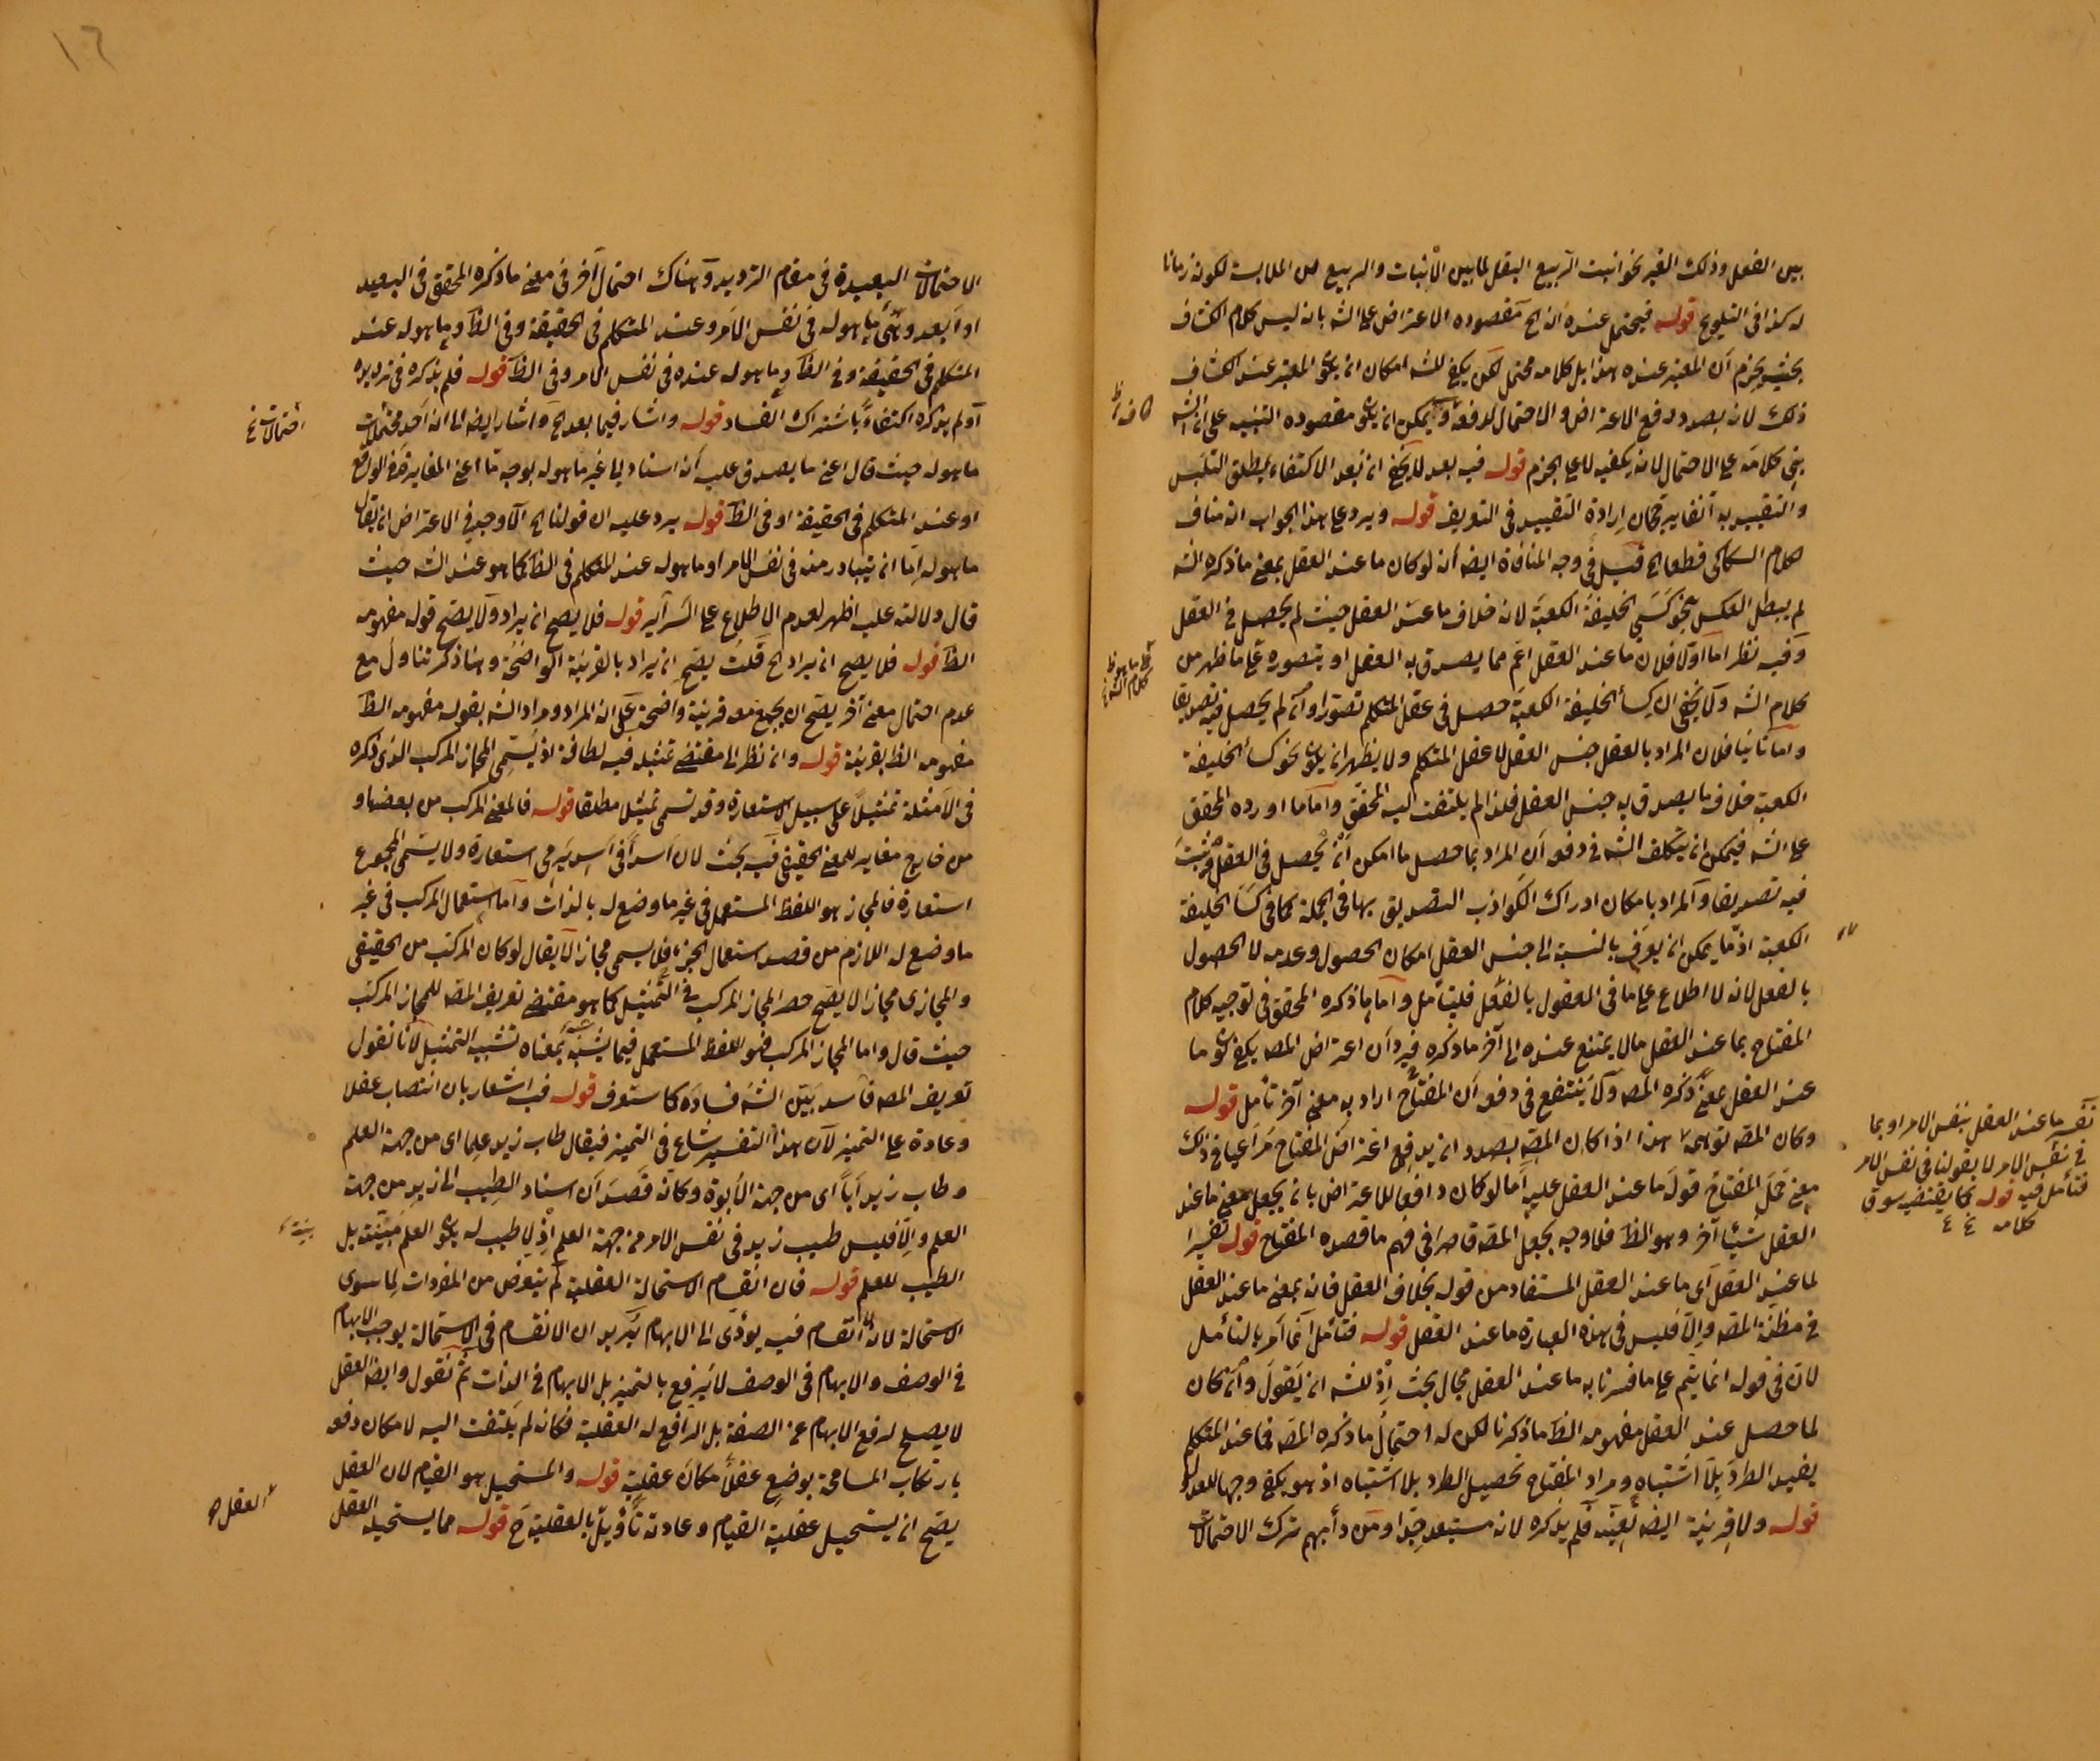 بين الفعل وذلك الغير نحو انبت الربيع البقل لما بين الانبات والربيع من الملابسة لكونه زمانا
له كذا فى التلويح قوله فيحتمل عنده ان الخ مقصوده الاعتراض على الشه بانه ليس كلام الكشاف
بحيث يجزم ان المعتبر عنده هذا بل كلامه محتمل لكن يكفى للشه امكان ان يكون المعتبر عند الكشاف
ذلك لانه بصدد دفع الاعتراض والاحتمال لا دفعه ويمكن ان يكون مقصوده التنبيه على ان الشه
بنى كلامه على الاحتمال لانه يكفيه لا على الجزم قوله فيه بعد لا يخفى ان بعد الاكتفاء بمطلق التلبس
والتقييد به قوله ويرد على هذا الجواب انه مناف
لكلام السكاكى قطعا الخ قيل فى وجه المنافاة ايضا انه لو كان ما عند العقل بمعنى ما ذكره الشه
لم يبطل العكس بنحو كسى الخليفة الكعبة لانه خلاف ما عند العقل حيث لم يحصل فى العقل
وفيه نظر اما اولا فلان ما عند العقل اعم مما يصدق به العقل او يتصوره على ما ظهر من
كلام الشه ولا يخفى ان كسأ الخليفة الكعبة حصل فى عقل المتكلم تصورا وان لم يحصل فيه تصديقا
واما ثانيا فلان المراد بالعقل جنس العقل لا عقل المتكلم ولا يظهر ان يكون نحو كسأ الخليفة
الكعبة خلاف ما يصدق به جنس العقل فلذا لم يلتفت اليه المحقق واما ما اورده المحقق
على الشه فيمكن ان يتكلف الشه فى دفعه ان المراد بما حصل ما امكن ان يحصل فى العقل ويثبت
فيه تصديقا والمراد بامكان ادراك الكواذب التصديق بها فى الجملة كما فى كسا الخليفة
الكعبة اذ ما يمكن ان يعرف بالنسبة الى جنس العقل امكان الحصول وعدمه لا الحصول
بالفعل لانه لا اطلاع على ما فى العقول بالفعل فليتأمل واما ما ذكره المحقق فى توجيه كلام
المفتاح بما عند العقل ما لا يمتنع عنده الى آخر ما ذكره فيرد ان اعتراض المصه يكفى كون ما
عند العقل بمعنى ذكره المصه ولا ينتفع فى دفعه ان المفتاح اراد به معنى آخر تأمل قوله
وكان المصه توهم هذا اذا كان المصه بصدد ان يدفع اعتراض المفتاح مراعيا فى ذلك
معنى حمل المفتاح قوله ما عند العقل عليه اما لو كان دافعا للاعتراض بان يجعل معنى ما عند
العقل شيئا آخر وهو الظ فلا وجه بجعل المصه قاصرا فى فهم ما قصده المفتاح قوله تفسيرا
لما عند العقل اى ما عند العقل المستفاد من قوله بخلاف العقل فانه بمعنى ما عند العقل
فى مظنة المصه والا فليس فى هذه العبارة ما عند العقل قوله فتأمل انما امر بالتأمل
لان فى قوله انما يتم على ما فسرنا به ما عند العقل مجال بحث اذ للشه ان يقول وان كان
لما حصل عند العقل مفهومه الظ ما ذكرنا لكن له احتمال ما ذكره المصه فما عند المتكلم
يفيد الطرد بلا اشتباه ومراد المفتاح تحصيل الطرد بلا اشتباه اذ هو يكفى وجها للعدول
قوله ولا قرينة ايضا تعينه فلم يذكره لانه مستبعد جدا ومن دأبهم ترك الاحتمالات
تفسير ما عند العقل بنفس الامر او بما
فى نفس الامر لا بقولنا فى نفس الامر
فتأمل فيه قوله كما يقتضيه سوق
كلامه
كما هو ظ
كلام الشه
١٦
الاحتمالات البعيدة فى مقام الترديد وهناك احتمال آخر فى معنى ما ذكره المحقق فى البعيد
او ابعد وهى ما هو له فى نفس الامر وعند المتكلم فى الحقيقة وفى الظ وما هو له عند
المتكلم فى الحقيقة وفى الظ وما هو له عنده فى نفس الامر وفى الظ قوله فلم يذكره فى ترديده
او لم يذكره اكتفاء باشتراك الفساد قوله واشار فيما بعد الخ واشار ايضا الى انه احد محتملات
ما هو له حيث قال اعنى ما يصدق عليه انه اسناد الى غير ما هو له بوجه ما اعنى المغايرة فى الواقع
او عند المتكلم فى الحقيقة او فى الظ قوله يرد عليه ان قولنا الخ الاوجه فى الاعتراض ان يقال
ما هو له اما ان يتبادر منه فى نفس الامر او ما هو له عند المتكلم فى الظ كما هو عند الشه حيث
قال ودلالته عليه اظهر لعدم الاطلاع على السرآير قوله فلا يصح ان يراد ولا يصح قوله مفهومه
الظ قوله فلا يصح ان يراد الخ قلت يصح ان يراد بالقرينة الواضحة وهنا ذكر تناول مع
عدم احتمال معنى آخر يصح ان يجمع معه قرينة واضحة على ان المراد ومراد الشه بقوله مفهومه الظ
مفهومه الظ بقرينة قوله وان نظر الى مقتضى تمثيله فيه لطافة اذ يسمى المجاز المركب الذى ذكره
فى الامثلة تمثيلا على سبيل الاستعارة وقد تسمى تمثيل مطلقا قوله فالمعنى المركب من بعضها و
من خارج مغاير للمعنى الحقيقى فيه بحث لان اسدا فى اسد يرمى استعارة ولا يسمى المجموع
استعارة فالمجاز هو اللفظ المستعمل فى غير ما وضع له بالذات واما استعمال المركب فى غير
ما وضع له اللازم من قصد استعمال الجزء فلا يسمى مجازا لا يقال لو كان المركب من الحقيقى
والمجازى مجازا لا يصح حصر المجاز المركب فى التمثيل كما هو مقتضى تعريف المصه للمجاز المركب
حيث قال واما المجاز المركب فهو اللفظ المستعمل فيما يشبه بمعناه تشبيه التمثيل لانا نقول
تعريف المصه فاسد بين الشه فساده كما ستعرف قوله فيه اشعار بان انتصاب عقلا
وعادة على التمييز لان هذا التفسير شاع فى التمييز فيقال طاب زيد علما اى من جهة العلم
وطاب زيد أبا اى من جهة الابوة وكانه قصد ان اسناد الطيب الى زيد من جهة
العلم والا فليس طيب زيد فى نفس الامر من جهة العلم اذ لا طيب له يكون العلم مبينته بل
الطيب للعلم قوله فان انقسام الاستحالة العقلية لم يتعرض من المفردات لما سوى
الاستحالة لانه انقسام فيه يؤدى الى الابهام يريد ان الانقسام فى الاستحالة يوجب الابهام
فى الوصف والابهام فى الوصف لا يرفع بالتمييز بل الابهام فى الذات ثم نقول وايضا العقل
لا يصلح لرفع الابهام عن الصفة بل الرافع له العقلية فكانه لم يلتفت اليه لامكان دفعه
بارتكاب المسامحة بوضع عقلا مكان عقلية قوله والمستحيل هو القيام لان العقل
يصح ان يستحيل عقلية القيام وعادته تأويل بالعقلية ح قوله مما يستحيله العقل
احتمالات
العقل